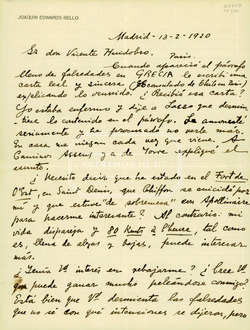 JOAQUÍN EDWARDS BELLO
Madrid - 13-2-1920
Sr don Vicente Huidobro,
Paris.
Cuando apareció el párrafo
lleno de falsedades en GRECIA le escribí una
carta leal y sincera
explicando lo ocurrido. ¿Recibió esa carta?
Yo estaba enfermo y dije a Lasso que desmin-
tiese lo contenido en el párrafo. Lo amonesté
seriamente y he procurado no verle más.
En casa me niegan cada vez que viene. A
Cansinos Assens y de Torre expliqué el
asunto.
¿Necesito decir que he estado en el Fort de
l'Est, en Saint Denis, que Chiffon se suicidó por
mí y que estuve "de sobremesa" con Apollinaire
para hacerme interesante? Al contrario: mi
vida dispareja y 80 Kmts à l'heure, tal como
es, llena de alzas y bajas, puede interesar
más.
¿Tenía Vd. interés en rebajarme? ¿Cree Vd.
que puede ganar mucho peleándose conmigo?
Está bien que Vd. desmienta las falsedades
que no sé con qué intenciones se dijeron, pero